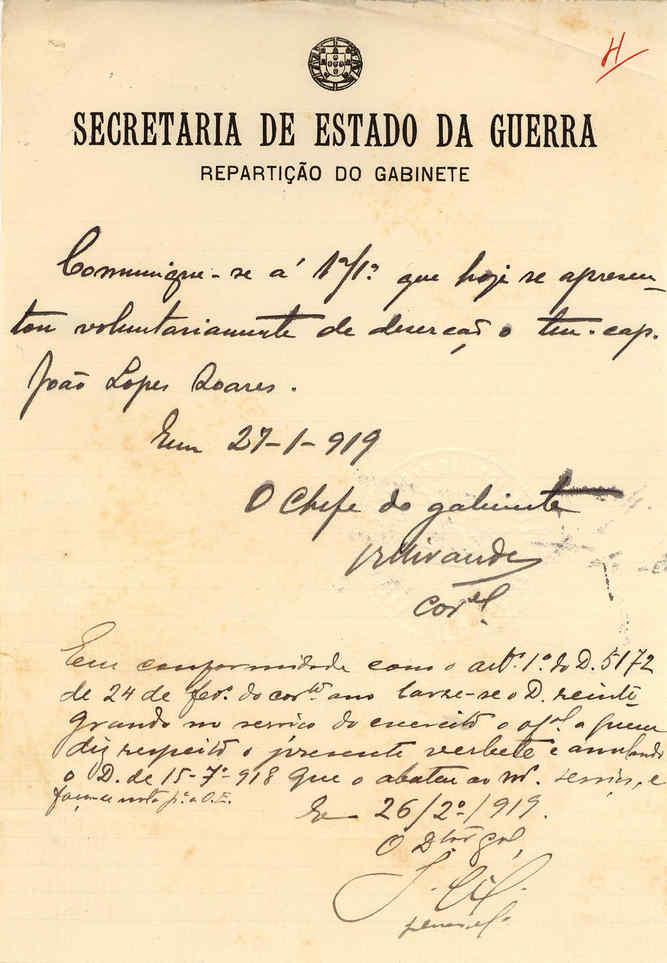 H
SECRETARIA DE ESTADO DA GUERRA
REPARTIÇÃO DO GABINETE
Comunique-se á 1ª/1ª que hoje se apresen-
tou voluntariamente de deserção o ten.-cap.
João Lopes Soares.
Em 27-1-919
O Chefe do gabinete
Miranda
Corel.
Em conformidade com o artº. 1º. do D. 5172
de 24 de fevº. do corte ano lavre-se o D. reinte-
grando no serviço do exercito o ofal a quem
diz respeito o presente verbete e anulando
o D. de 15-7º-918 que o abateu ao serviço, e
faça-se nota pª a O.E.
Em 26/2º/919.
O Dtor gal,
general.